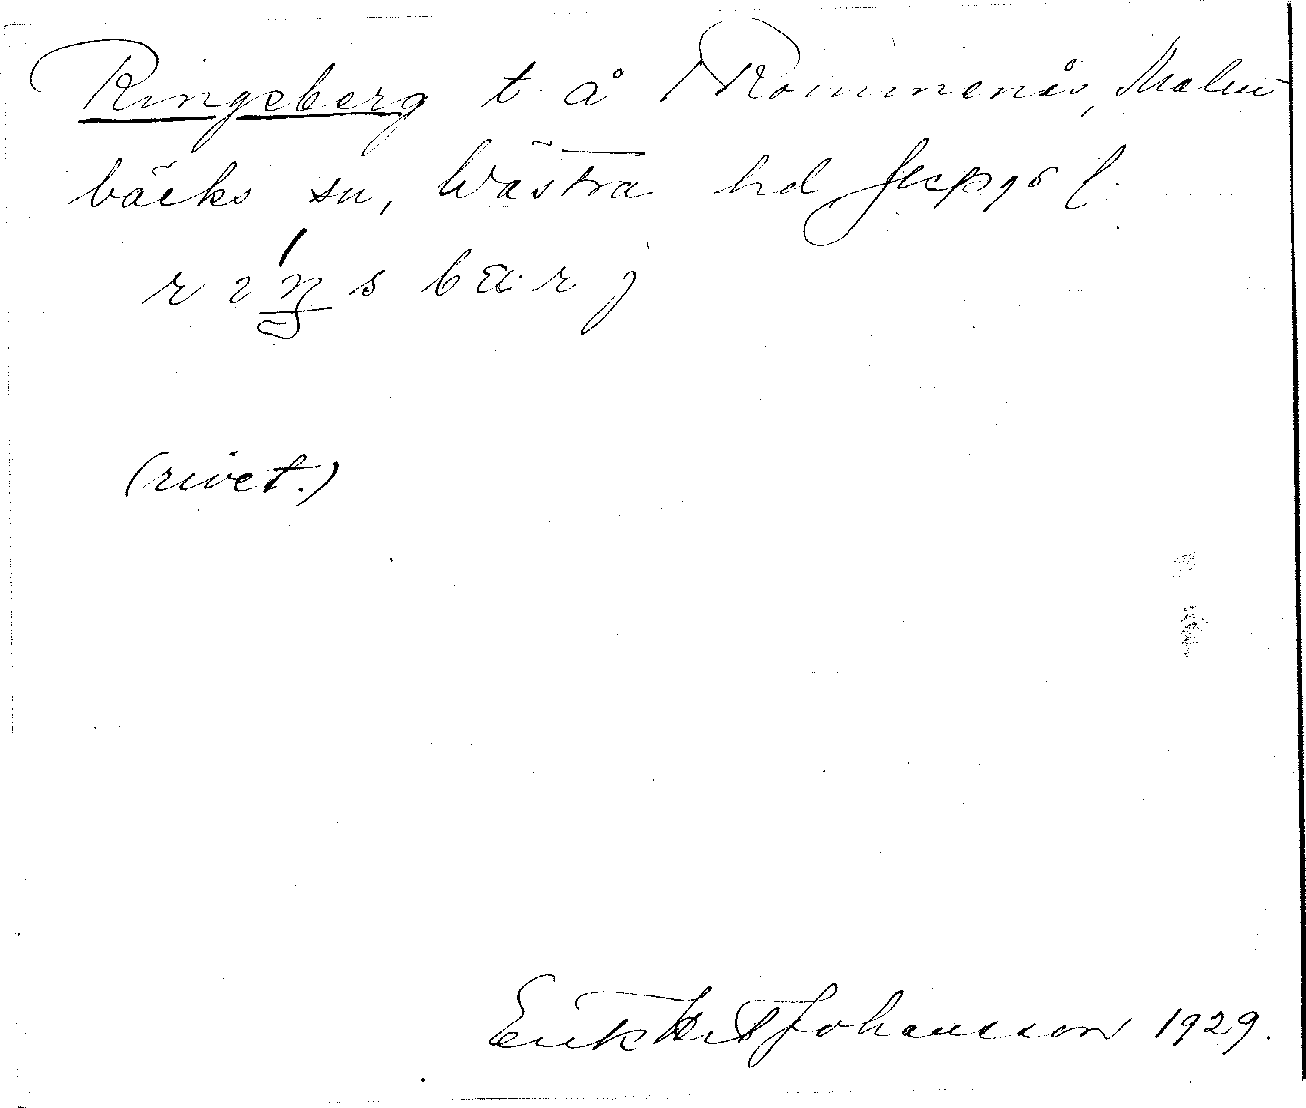 Ringeberg t. å Rommenås, Malm
bäcks sn, Västra hd Jkpgs l.
rıŋsbærj
(rivet.)
Erik Johansson 1929.